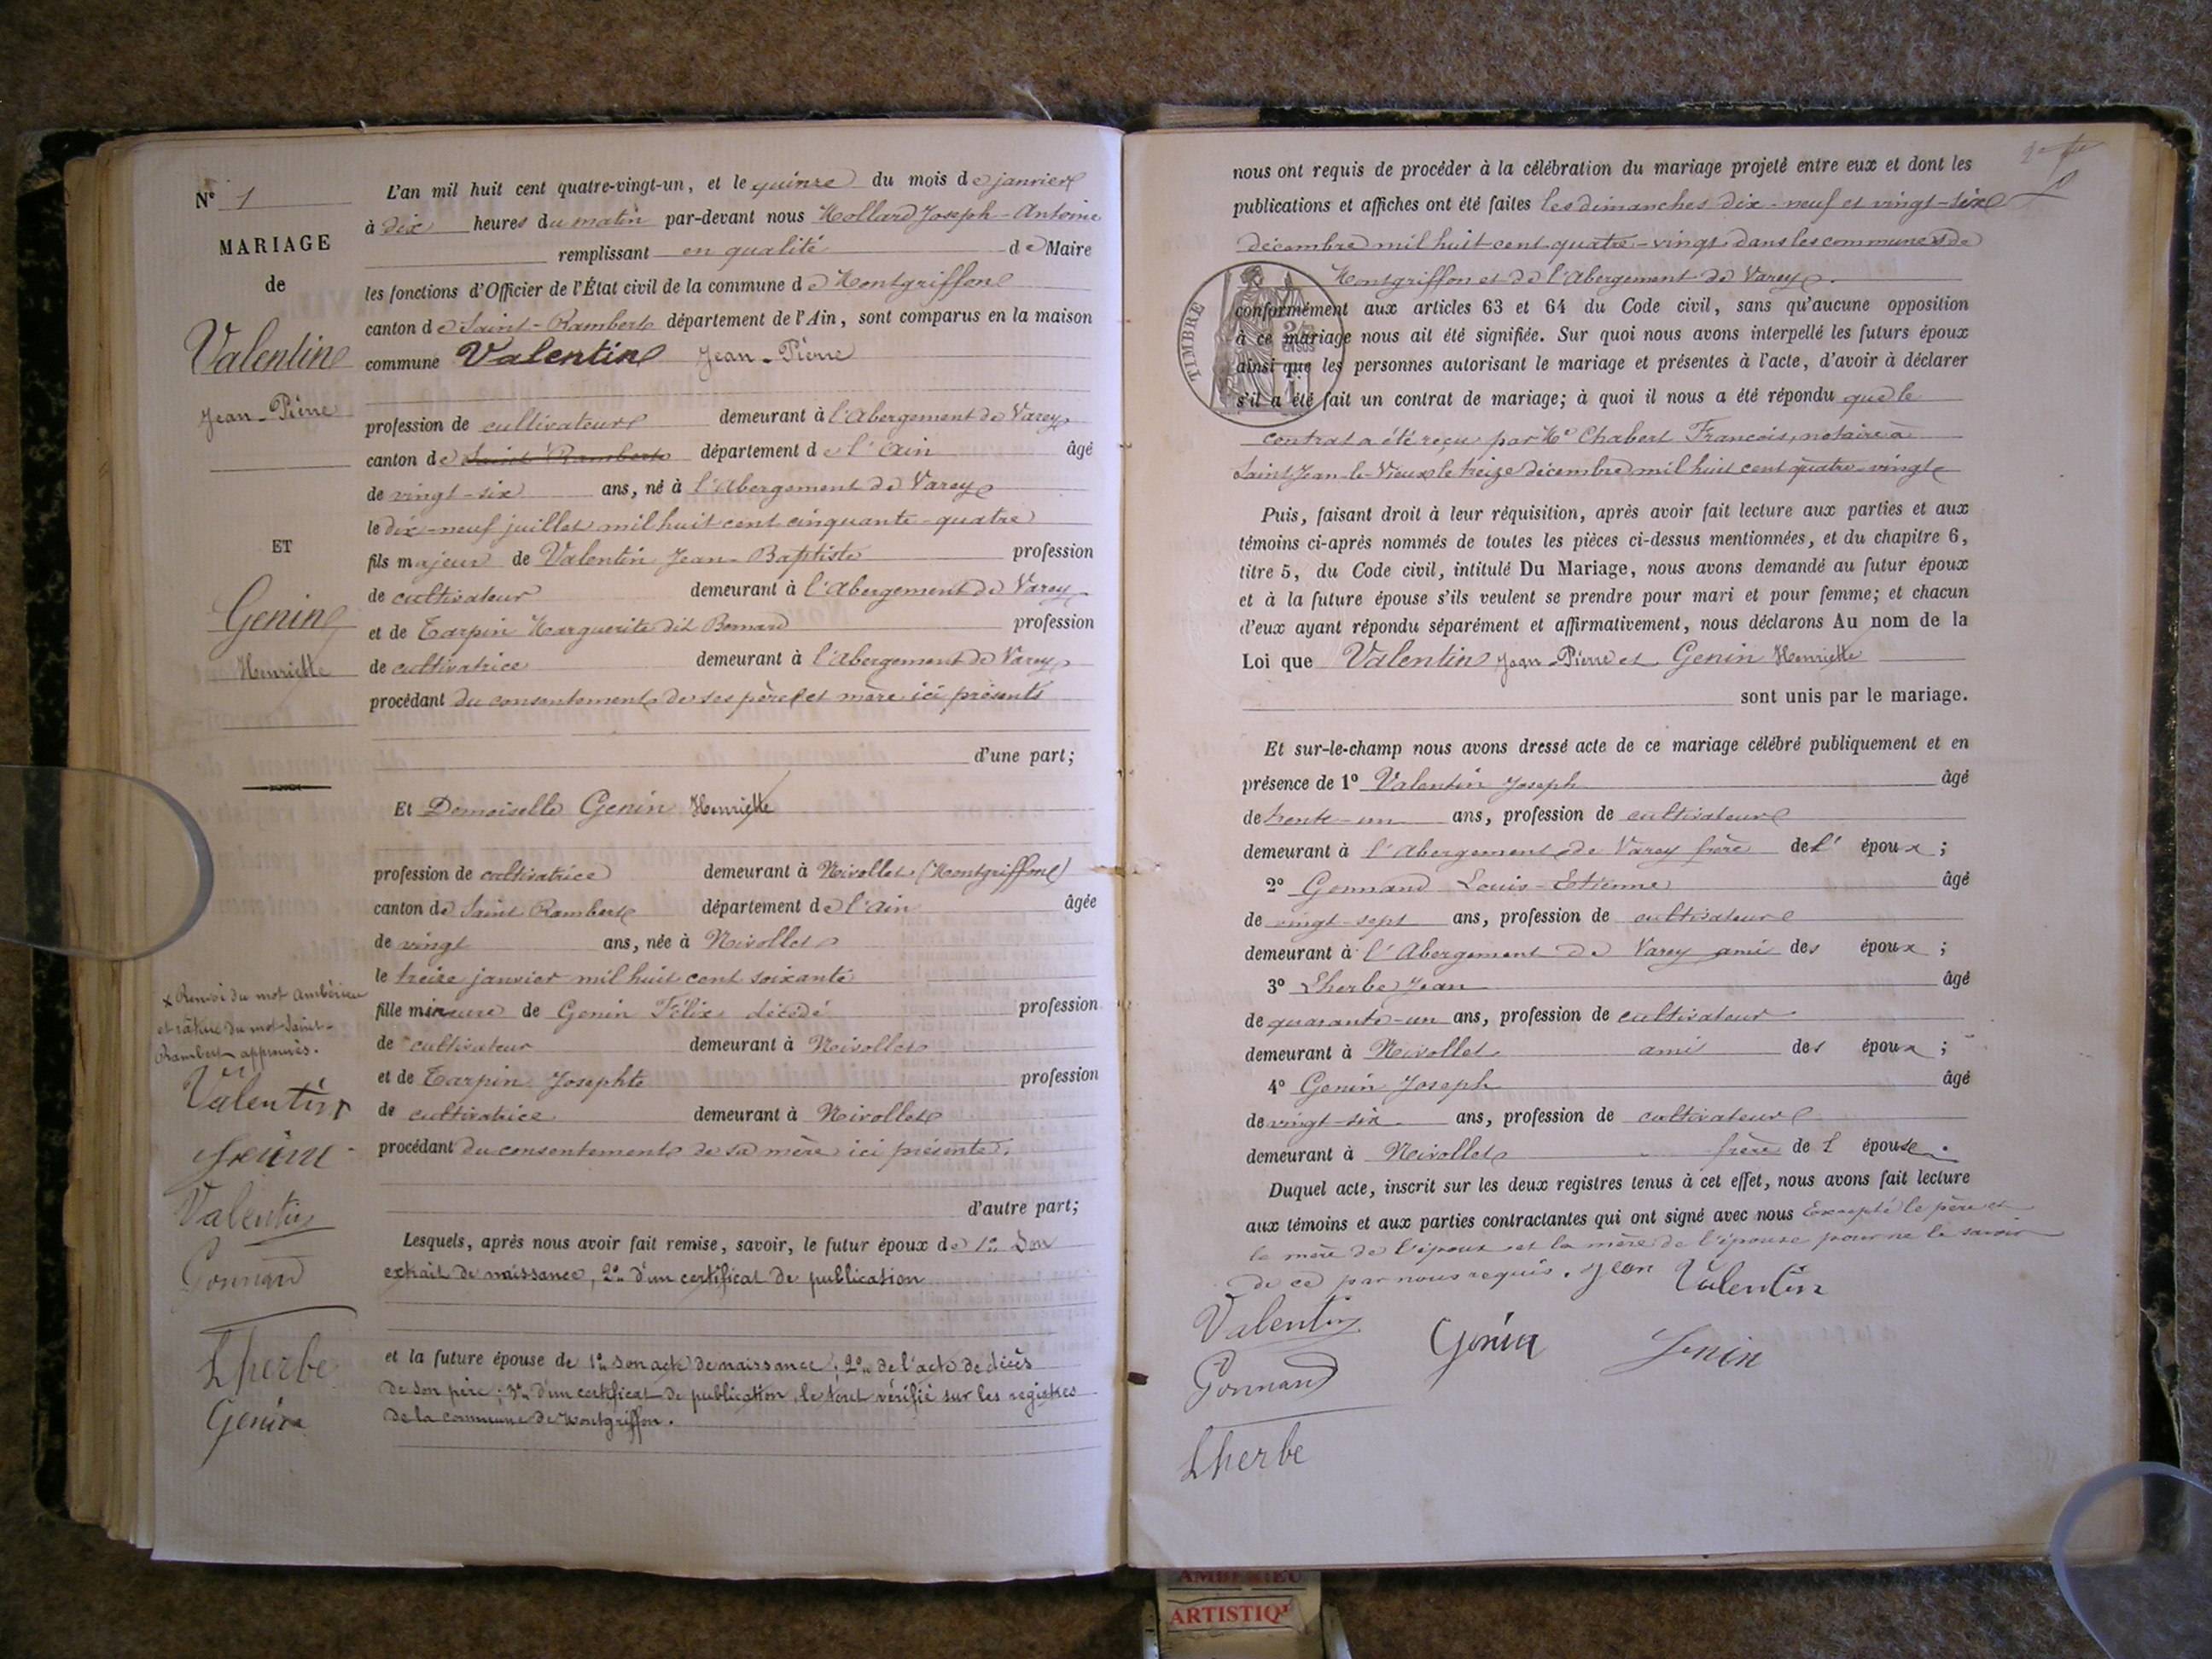 N° 1
MARIAGE
de
Valentin
Jean-Pierre
ET
Genin
Henriette
x Renvoi du mot Ambérieu
et râture du mot Saint-
Rambert approuvés.
Valentin
Genin
Valentin
Gonnand
Lherbe
Genin
L'an mil huit cent quatre-vingt-un, et le quinze du mois de janvier
à dix heures du matin par-devant nous Mollard Joseph-Antoine
remplissant en qualité de Maire
les fonctions d'Officier de l'État civil de la commune de Montgriffon
canton de Saint-Rambert département de l'Ain, sont comparus en la maison
commune Valentin Jean-Pierre
profession de cultivateur demeurant à l'Abergement de Varey
canton de Saint Rambert département de l'Ain âgé
de vingt-six ans, né à l'Abergement de Varey
le dix-neuf juillet mil huit cent cinquante-quatre
fils majeur de Valentin Jean-Baptiste profession
de cultivateur demeurant à l'Abergement de Varey
et de Tarpin Marguerite dit Bernard profession
de cultivatrice demeurant à l'Abergement de Varey
procédant du consentement de ses père et mère ici présents
d'une part;
Et Demoiselle Genin Henriette
profession de cultivatrice demeurant à Nivollet (Montgriffon)
canton de Saint Rambert département de l'Ain âgée
de vingt ans, née à Nivollet
le treize janvier mil huit cent soixante
fille mineure de Genin Félix décédé profession
de cultivateur demeurant à Nivollet
et de Tarpin Josephte profession
de cultivatrice demeurant à Nivollet
procédant du consentement de sa mère ici présente.
d'autre part;
Lesquels, après nous avoir fait remise, savoir, le futur époux de 1° Son
extrait de naissance, 2° d'un certificat de publication
et la future épouse de 1° son acte de naissance; 2° de l'acte de décès
de son père; 3° d'un certificat de publication, le tout vérifié sur les registres
de la commune de Montgriffon.
nous ont requis de procéder à la célébration du mariage projeté entre eux et dont les
publications et affiches ont été faites les dimanches dix-neuf et vingt-six
décembre mil huit cent quatre-vingt dans les communes de
Montgriffon et de l'Abergement de Varey.
TIMBRE
conformément aux articles 63 et 64 du Code civil, sans qu'aucune opposition
à ce mariage nous ait été signifiée. Sur quoi nous avons interpellé les futurs époux
ainsi que les personnes autorisant le mariage et présentes à l'acte, d'avoir à déclarer
s'il a été fait un contrat de mariage; à quoi il nous a été répondu que le
contrat a été reçu par Me Chabert François, notaire à
Saint Jean-le-Vieux le treize décembre mil huit cent quatre-vingt
Puis, faisant droit à leur réquisition, après avoir fait lecture aux parties et aux
témoins ci-après nommés de toutes les pièces ci-dessus mentionnées, et du chapitre 6,
titre 5, du Code civil, intitulé Du Mariage, nous avons demandé au futur époux
et à la future épouse s'ils veulent se prendre pour mari et pour femme; et chacun
d'eux ayant répondu séparément et affirmativement, nous déclarons Au nom de la
Loi que Valentin Jean-Pierre et Genin Henriette
sont unis par le mariage.
Et sur-le-champ nous avons dressé acte de ce mariage célébré publiquement et en
présence de 1° Valentin Joseph âgé
de trente-un ans, profession de cultivateur
demeurant à l'Abergement de Varey frère de l' époux;
2° Gonnand Louis-Etienne âgé
de vingt-sept ans, profession de cultivateur
demeurant à l'Abergement de Varey ami des époux;
3° Lherbe Jean âgé
de quarante-un ans, profession de cultivateur
demeurant à Nivollet ami des époux;
4° Genin Joseph âgé
de vingt-six ans, profession de cultivateur
demeurant à Nivollet frère de l épouse.
Duquel acte, inscrit sur les deux registres tenus à cet effet, nous avons fait lecture
aux témoins et aux parties contractantes qui ont signé avec nous Excepté le père et
la mère de l'époux et la mère de l'épouse pour ne le savoir
de ce par nous requis. Jean Valentin
Valentin
Genin
Genin
Gonnand
Lherbe
ARTISTIQ